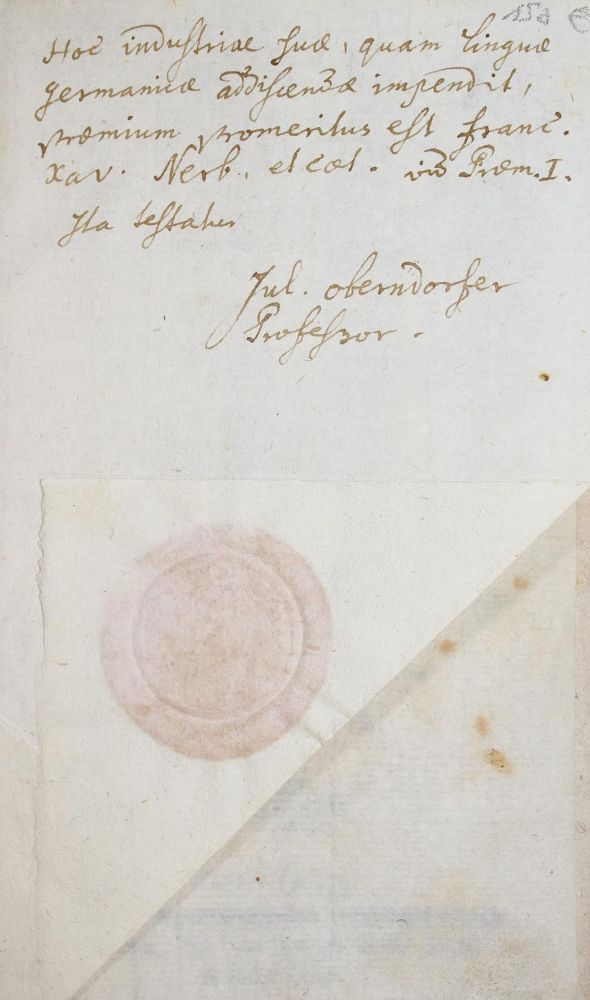 150 €
Hoc industriae suæ, quam linguæ
germanicæ addiscendæ impendit,
præmium promeritus est Franc.
Xav. Nerb., et cæt. Præm. I.
Ita testatur
Jul. Oberndorfer
Professor.